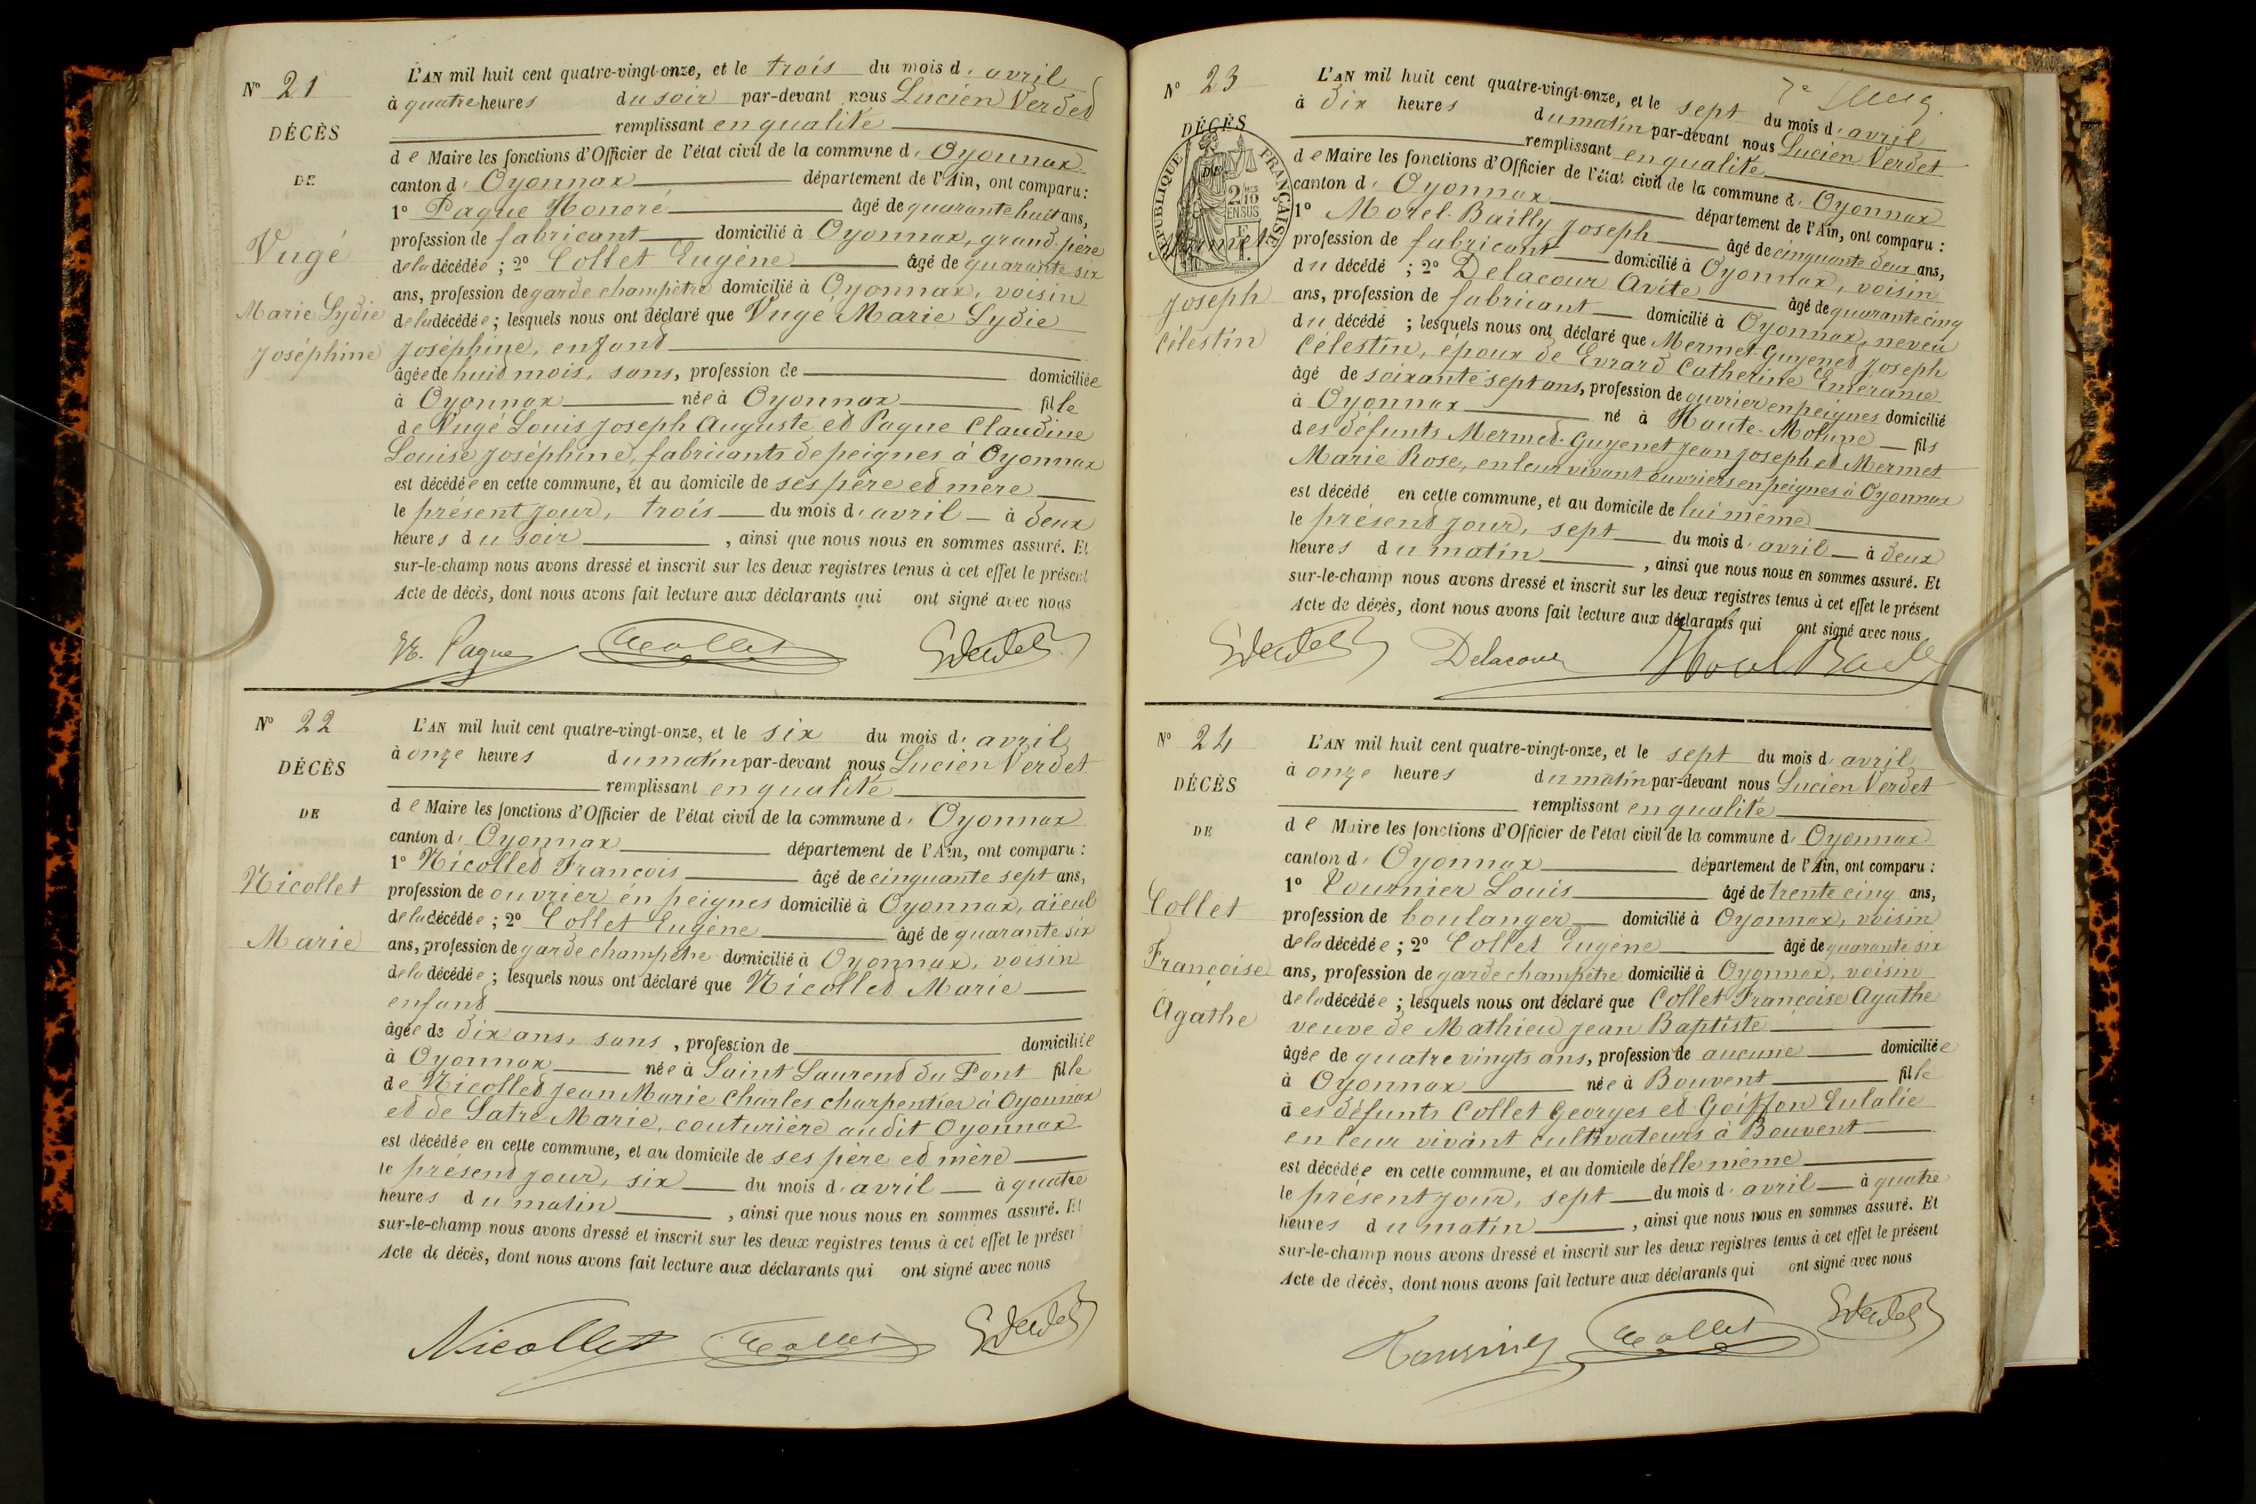 N° 21
DÉCÈS
DE
Vugé
Marie Lydie
Joséphine
L'AN mil huit cent quatre-vingt-onze, et le trois du mois d'avril
à quatre heures du soir par-devant nous Lucien Verdet
remplissant en qualité
de Maire les fonctions d'Officier de l'état civil de la commune d'Oyonnax
canton d'Oyonnax département de l'Ain, ont comparu :
1° Pague Honoré âgé de quarante huit ans,
profession de fabricant domicilié à Oyonnax, grand-père
de la décédée ; 2° Collet Eugène âgé de quarante six
ans, profession de garde champêtre domicilié à Oyonnax, voisin
de la décédée ; lesquels nous ont déclaré que Vugé Marie Lydie
Joséphine, enfant
âgée de huit mois, sans, profession de domiciliée
à Oyonnax née à Oyonnax fille
de Vugé Louis Joseph Auguste et Pague Claudine
Louise Joséphine, fabricants de peignes à Oyonnax
est décédée en cette commune, et au domicile de ses père et mère
le présent jour, trois du mois d'avril à deux
heures du soir , ainsi que nous nous en sommes assuré. Et
sur-le-champ nous avons dressé et inscrit sur les deux registres tenus à cet effet le présent
Acte de décès, dont nous avons fait lecture aux déclarants qui ont signé avec nous
H. Pague Collet Verdet
N° 22
DÉCÈS
DE
Nicollet
Marie
L'AN mil huit cent quatre-vingt-onze, et le six du mois d'avril
à onze heures du matin par-devant nous Lucien Verdet
remplissant en qualité
de Maire les fonctions d'Officier de l'état civil de la commune d'Oyonnax
canton d'Oyonnax département de l'Ain, ont comparu :
1° Nicollet François âgé de cinquante sept ans,
profession de ouvrier en peignes domicilié à Oyonnax, aïeul
de la décédée ; 2° Collet Eugène âgé de quarante six
ans, profession de garde champêtre domicilié à Oyonnax, voisin
de la décédée ; lesquels nous ont déclaré que Nicollet Marie
enfant
âgée de dix ans, sans , profession de domiciliée
à Oyonnax née à Saint Laurent du Pont fille
de Nicollet Jean Marie Charles charpentier à Oyonnax
et de Satre Marie, couturière audit Oyonnax
est décédée en cette commune, et au domicile de ses père et mère
le présent jour, six du mois d'avril à quatre
heures du matin , ainsi que nous nous en sommes assuré. Et
sur-le-champ nous avons dressé et inscrit sur les deux registres tenus à cet effet le présent
Acte de décès, dont nous avons fait lecture aux déclarants qui ont signé avec nous
Nicollet Collet Verdet
N° 23
DÉCÈS
DE
RÉPUBLIQUE FRANÇAISE
2/10 EN SUS
Mermet
Joseph
Célestin
L'AN mil huit cent quatre-vingt-onze, et le sept du mois d'avril
à dix heures du matin par-devant nous Lucien Verdet
remplissant en qualité
de Maire les fonctions d'Officier de l'état civil de la commune d'Oyonnax
canton d'Oyonnax département de l'Ain, ont comparu :
1° Morel-Bailly Joseph âgé de cinquante deux ans,
profession de fabricant domicilié à Oyonnax, voisin
du décédé ; 2° Delacour Avite âgé de quarante cinq
ans, profession de fabricant domicilié à Oyonnax, neveu
du décédé ; lesquels nous ont déclaré que Mermet-Guyenet Joseph
Célestin, époux de Evrard Catherine Emerance
âgé de soixante sept ans, profession de ouvrier en peignes domicilié
à Oyonnax né à Haute-Molune fils
des défunts Mermet-Guyenet Jean Joseph et Mermet
Marie Rose, en leur vivant ouvriers en peignes à Oyonnax
est décédé en cette commune, et au domicile de lui même
le présent jour, sept du mois d'avril à deux
heures du matin , ainsi que nous nous en sommes assuré. Et
sur-le-champ nous avons dressé et inscrit sur les deux registres tenus à cet effet le présent
Acte de décès, dont nous avons fait lecture aux déclarants qui ont signé avec nous
Verdet Delacour Morel Bailly
N° 24
DÉCÈS
DE
Collet
Françoise
Agathe
L'AN mil huit cent quatre-vingt-onze, et le sept du mois d'avril
à onze heures du matin par-devant nous Lucien Verdet
remplissant en qualité
de Maire les fonctions d'Officier de l'état civil de la commune d'Oyonnax
canton d'Oyonnax département de l'Ain, ont comparu :
1° Tournier Louis âgé de trente cinq ans,
profession de boulanger domicilié à Oyonnax, voisin
de la décédée ; 2° Collet Eugène âgé de quarante six
ans, profession de garde champêtre domicilié à Oyonnax, voisin
de la décédée ; lesquels nous ont déclaré que Collet Françoise Agathe
veuve de Mathieu Jean Baptiste
âgée de quatre vingts ans, profession de aucune domiciliée
à Oyonnax née à Bouvent fille
des défunts Collet Georges et Goiffon Eulalie
en leur vivant cultivateurs à Bouvent
est décédée en cette commune, et au domicile d'elle même
le présent jour, sept du mois d'avril à quatre
heures du matin , ainsi que nous nous en sommes assuré. Et
sur-le-champ nous avons dressé et inscrit sur les deux registres tenus à cet effet le présent
Acte de décès, dont nous avons fait lecture aux déclarants qui ont signé avec nous
Tournier Collet Verdet